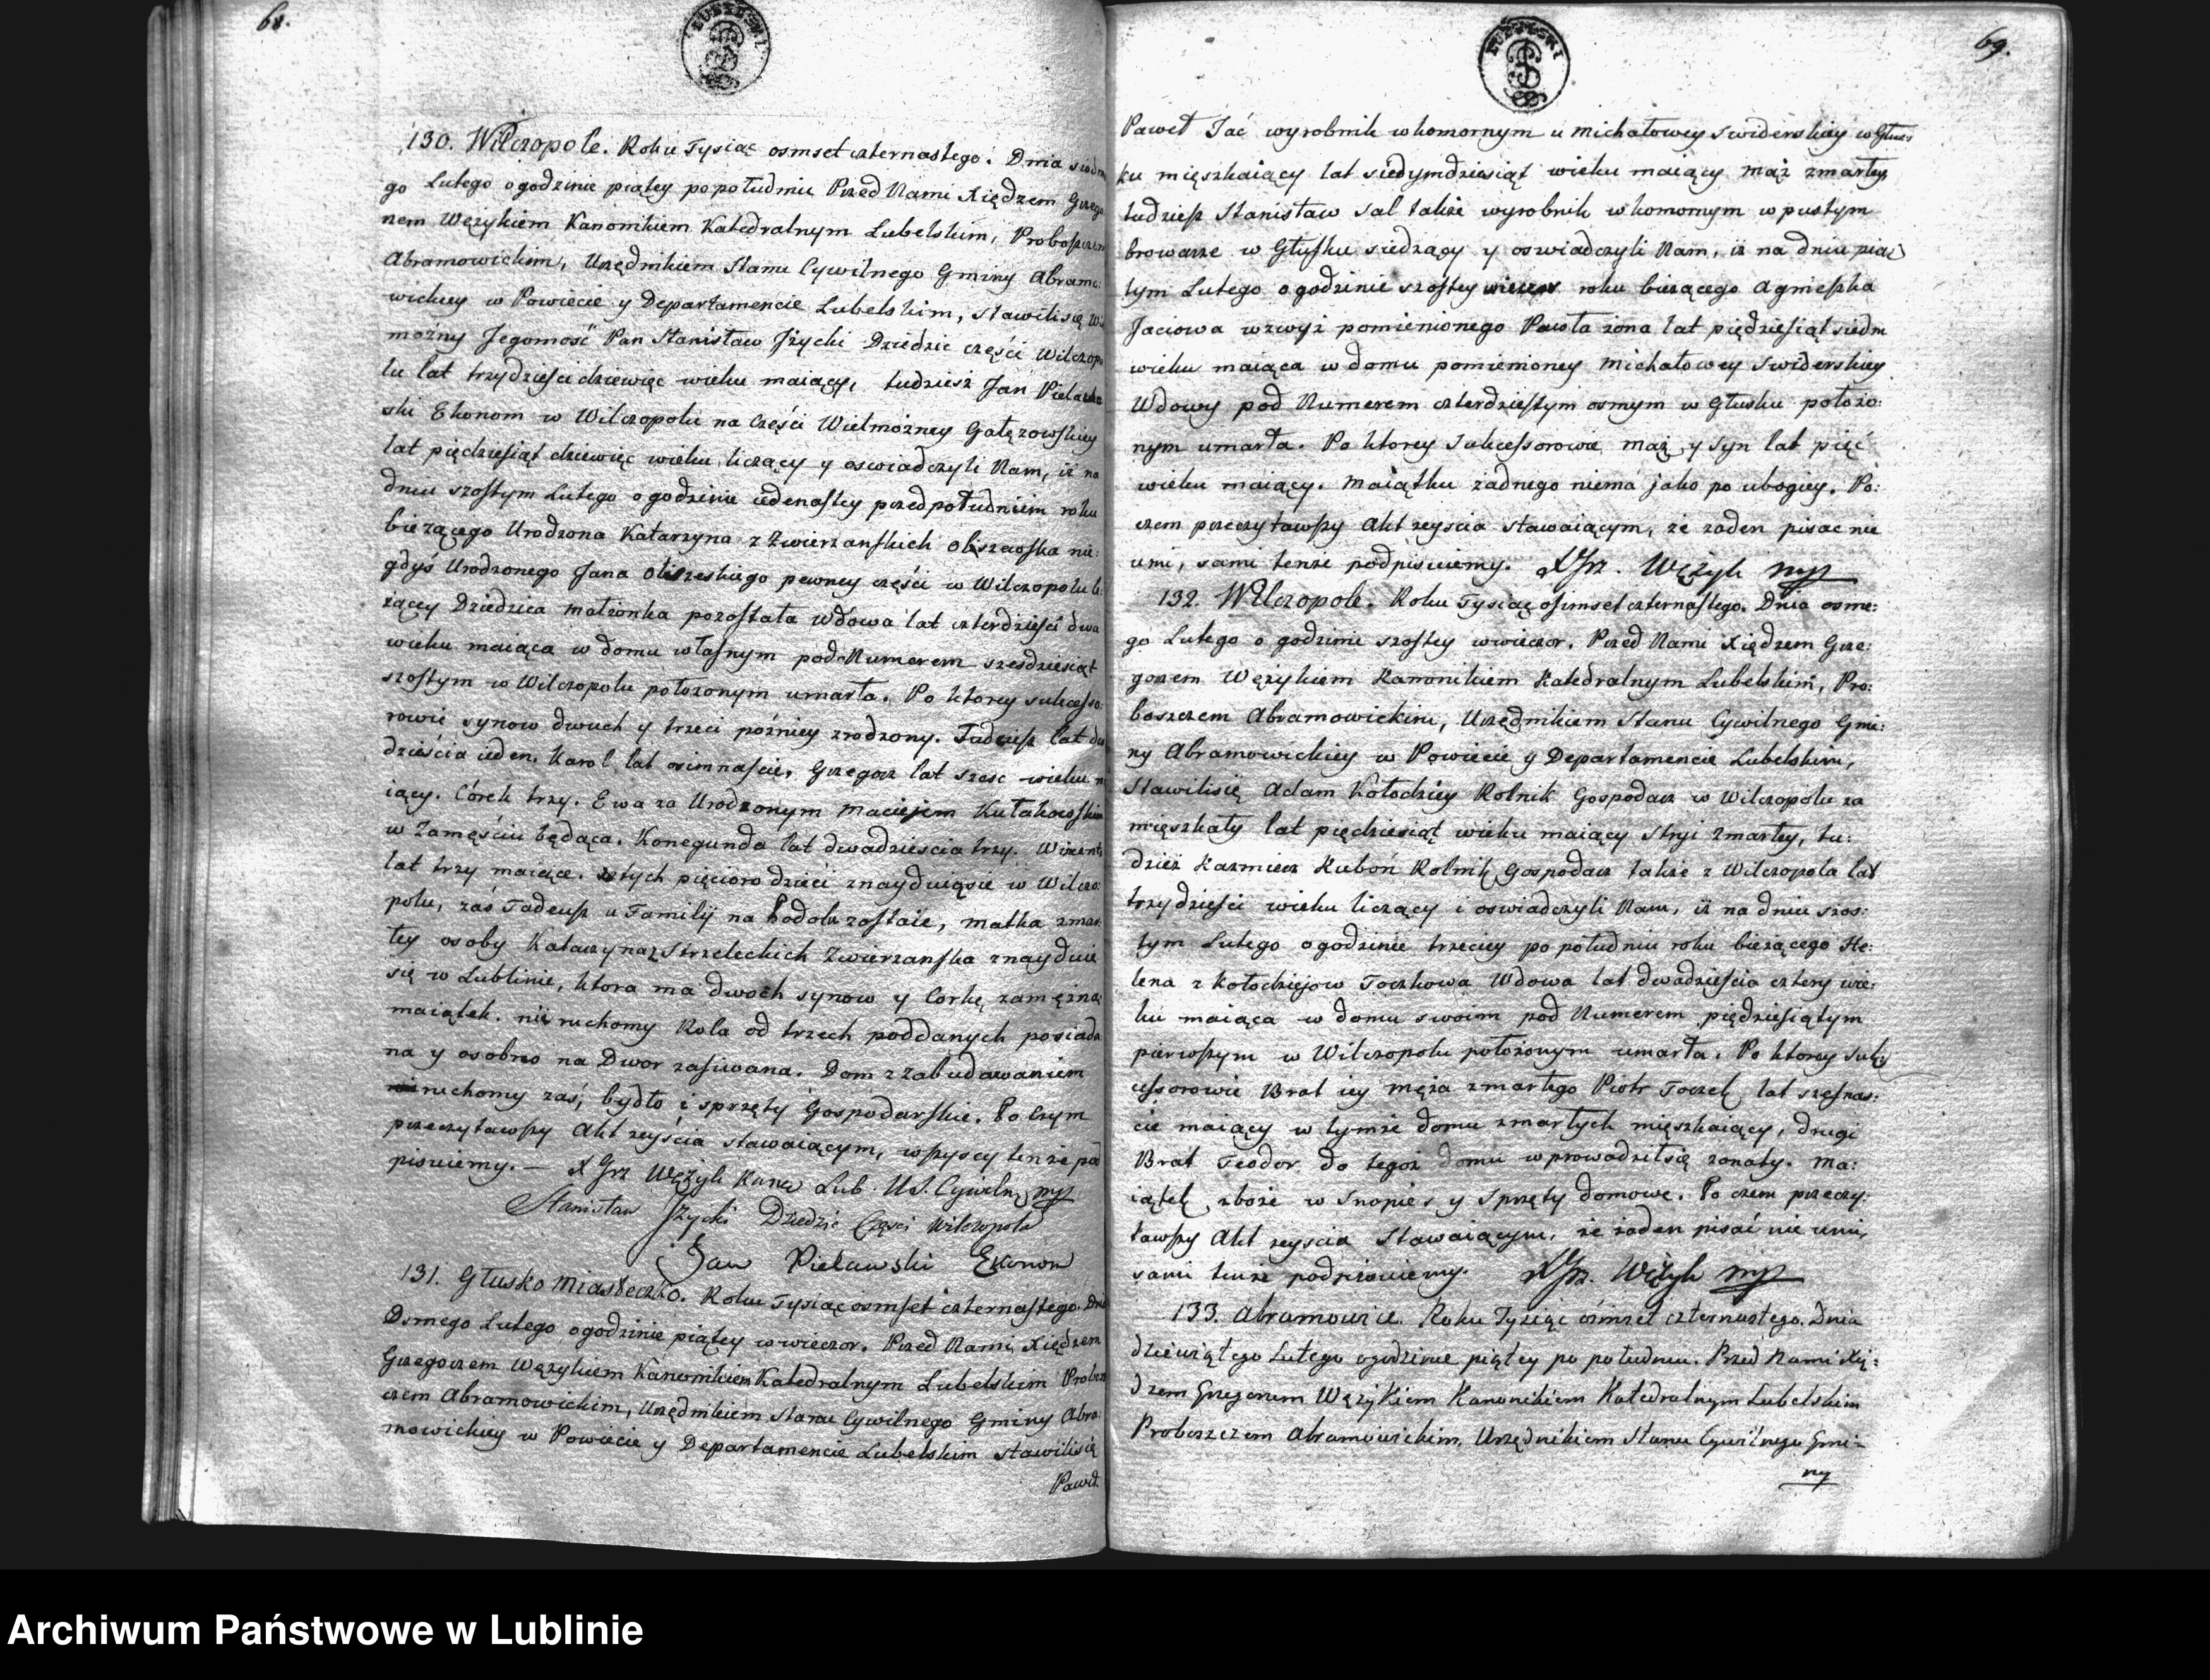 68.
130. Wilczopole. Roku Tysiąc osmset czternastego. Dnia
go Lutego o godzinie piątey po południu Przed Nami Xiędzem Grzego
rzem Wężykiem Kanonikiem Katedralnym Lubelskim, Proboszczem
Abramowickim, Urzędnikiem Stanu Cywilnego Gminy Abramo:
wickiey w Powiecie y Departamencie Lubelskim, stawili się Wiel
możny Jegomość Pan Stanisław Jżycki Dziedzic części Wilczopo
lu lat trzydzieści dziewięć wieku maiący, tudziesz Jan Pielaw
ski Ekonom w Wilczopolu na części Wielmożney Gałęzowskiey
lat pięcdziesiąt dziewięc wieku liczący y oswiadczyli Nam, iż na
dniu szostym Lutego o godzinie iedenastey przed południem roku
bieżącego Urodzona Katarzyna z Zwierzanskich nie:
gdyś Urodzonego Jana pewney części w Wilczopolu le:
żącey Dziedzica małżonka pozostała Wdowa lat czterdzieści dwa
wieku maiąca w domu własnym pod Numerem szesdziesiąt
szostym w Wilczopolu położonym umarła. Po ktorey sukcesso:
rowie synow dwuch y trzeci poźniey zrodzony. Tadeusz lat dwa
dzieścia ieden. Karol lat osimnaście, Grzegorz lat szesc wieku ma
iący. Córek trzy. Ewa za Urodzonym Maciejem Kułakowskim
w Zamęściu będąca. Konegunda lat dwadzieścia trzy. Wincenta
lat trzy maiące. z tych pięcioro dzieci znayduiąsie w Wilczo:
polu, zaś Tadeusz u Familij na Podolu zostaie, matka zmar:
łey osoby Katarzyna z Strzeleckich Zwierzanska znayduie
się w Lublinie, ktora ma dwoch synow y Corkę zamężną
maiątek. nie ruchomy Rola od trzech poddanych posiada
na y osobno na Dwor zasiwana. Dom z zabudowaniem
ruchomy zaś, bydło i sprzęty Gospodarskie. Po czym
przeczytawszy Akt zeyścia stawaiącym, wszyscy tenże pod
pisuiemy. — X Grz Wężyk Kano Lub. U.S. Cywiln mp
Stanisław Jżycki Dziedzic Częsci Wilczopola
Jan Pielawski Ekonom
131. Głusko Miasteczko. Roku Tysiąc osmset czternastego. Dnia
Osmego Lutego o godzinie piątey w wieczor. Przed Nami Xiędzem
Grzegorzem Wężykiem Kanonikiem Katedralnym Lubelskim Probosz
czem Abramowickim, Urzędnikiem Stanu Cywilnego Gminy Abra:
mowickiey w Powiecie y Departamencie Lubelskim stawili się
Paweł
69.
Paweł Jać wyrobnik w komornym u Michałowey Swiderskiey w Głus:
ku mięszkaiący lat siedymdziesiąt wieku maiący mąż zmarłey
tudziesz Stanisław Sal także wyrobnik w komornym w pustym
browarze w Głusku siedzący y oswiadczyli Nam, iż na dniu pią:
tym Lutego o godzinie szostey roku bieżącego Agnieszka
Jaciowa wzwyż pomienionego Pawła żona lat pięcdziesiąt siedm
wieku maiąca w domu pomienioney Michałowey Swiderskiey
Wdowy pod Numerem czterdziestym osmym w Głusku położo:
nym umarła. Po ktorey Sukcessorowie mąż y syn lat pięć
wieku maiący. Maiątku żadnego niema jako po ubogiey. Po:
czem przeczytawszy Akt zeyscia stawaiącym, że żaden pisac nie
umi, sami tenże podpisuiemy. X Grz. Wężyk mp
132. Wilczopole. Roku Tysiąc osimset czternastego. Dnia osme:
go Lutego o godzinie szostey w wieczor. Przed Nami Xiędzem Grze:
gorzem Wężykiem Kanonikiem Katedralnym Lubelskim, Pro:
boszczem Abramowickim, Urzędnikiem Stanu Cywilnego Gmi:
ny Abramowickiey w Powiecie y Departamencie Lubelskim,
Stawili się Adam Kołodziey Rolnik Gospodarz w Wilczopolu za
mięszkały lat pięcdziesiąt wieku maiący Stryi zmarłey, tu:
dzież Kazmierz Kuboń Rolnik Gospodarz także z Wilczopola lat
trzydzieści wieku liczący i oswiadczyli Nam, iż na dniu szos:
tym Lutego o godzinie trzeciey po południu roku bieżącego He:
lena z Kołodziejow Toczkowa Wdowa lat dwadzieścia cztery wie:
ku maiąca w domu swoim pod Numerem pięcdziesiątym
pierwszym w Wilczopolu położonym umarła. Po ktorey suk:
cessorowie Brat iey męża zmarłego Piotr Toczek lat szesnas:
cie maiący w tymże domu zmarłych mięszkaiący, drugi
Brat Teodor do tegoż domu wprowadził się żonaty. Ma:
iątek zboże w Snopie y Sprzęty domowe. Po czem przeczy:
tawszy Akt zeyscia Stawaiącym, że żaden pisać nie umi,
sami tenże podpisuiemy. X Grz. Wężyk mp
133. Abramowice. Roku Tysiąc ośmset czternastego. Dnia
dziewiątego Lutego o godzinie piątey po południu. Przed Nami Xię:
dzem Grzegorzem Wężykiem Kanonikiem Katedralnym Lubelskim
Proboszczem Abramowickim, Urzędnikiem Stanu Cywilnego Gmi=
ny
Archiwum Państwowe w Lublinie